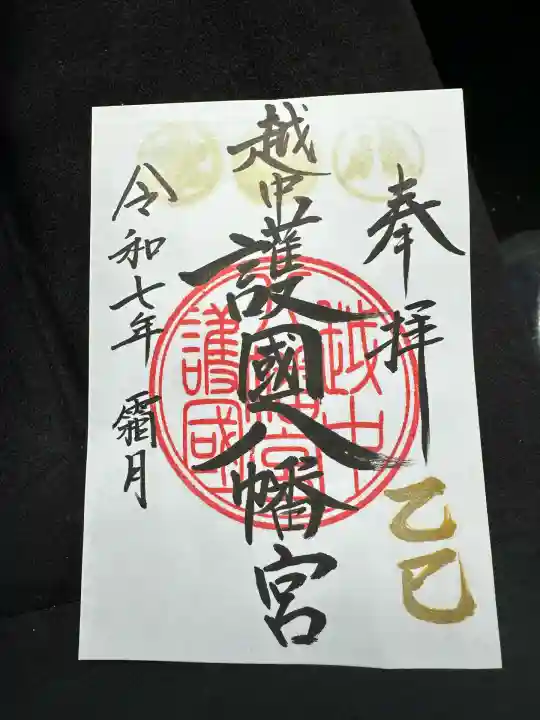 奉拝
乙巳
越中護國八幡宮
越中
八幡宮
護國
令和七年 霜月